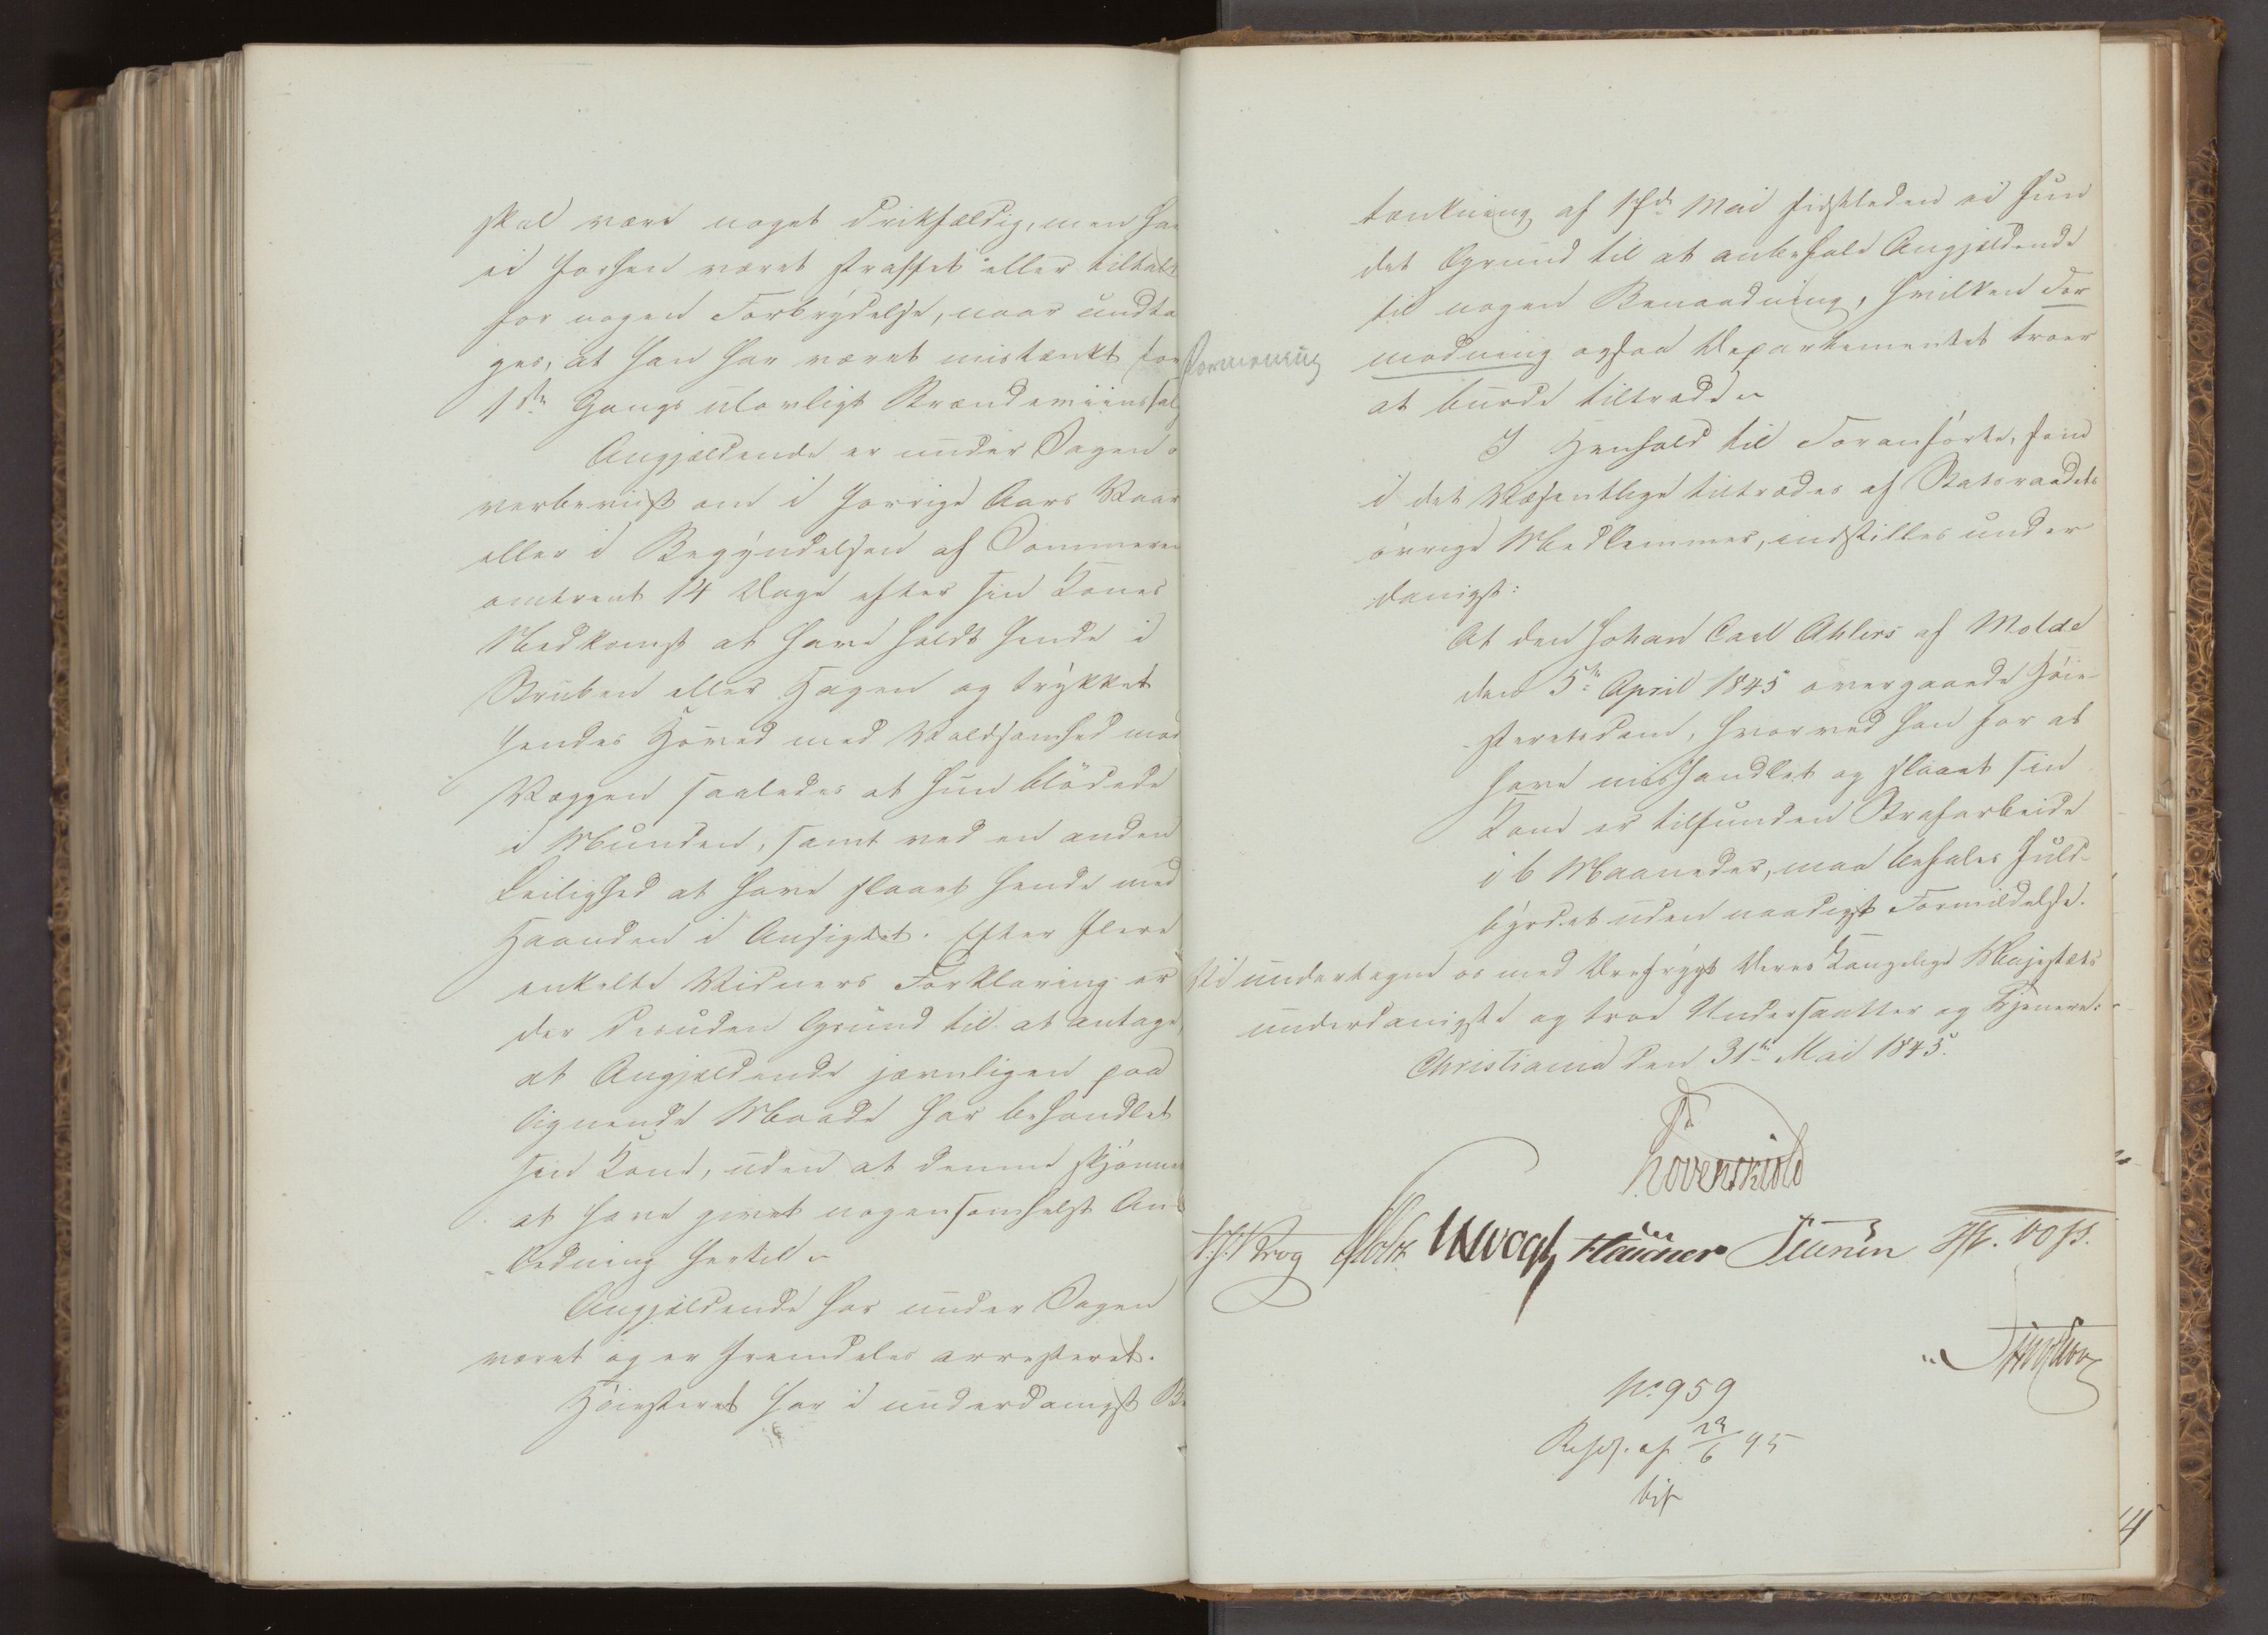 skal være noget drikfældig, men har
ei forhen været straffet eller tiltalt
for nogen Forbrydelse, naar undta
ges, at han har været mistænkt for
1ste Gangs ulovligt Brændeviinssalg
Angjældende er under Sagen o
verbeviist om i forrige Aars Vaar
eller i Begyndelsen af Sommeren
omtrent 14 Dage efter sin Kones
Nedkomst at have holdt hende i
Struben eller Hagen og trykket
hendes Hoved med Voldsomhed mod
Væggen saaledes at hun blödede
i Munden, samt ved en anden
Leilighed at have slaaet hende med
Haanden i Ansigtet. Efter flere
enkelte Vidners Forklaring er
der desuden Grund til at antage,
at Angjældende jævnligen paa
lignende Maade har behandlet
sin Kone, uden at denne skjönnes
at have givet nogensomhelst An
ledning hertil
Angjældende har under Sagen
været og er fremdeles arresteret.
Höiesteret har i underdanigst Be
tænkning af 17de Mai sidstleden ei fun
det Grund til at anbefale Angjældende
til nogen Benaadning, hvilken For
modning ogsaa Departementet troer
Formening
at burde tiltræde
I Henhold til Foranförte, som
i det Væsentlige tiltrædes af Statsraadets
övrige Medlemmer, indstilles under
danigst:
At den Johan Carl Ahlers af Molde
den 5te April 1845 overgaaede Höie-
steretsdom, hvorved han for at
have mishandlet og slaaet sin
Kone er tilfunden Strafarbeide
i 6 Maaneder, maa befales fuld-
byrdet uden naadigst Formildelse.
Vi undertegne os med Ærefrygt Deres Kongelige Majestæts
underdanigste og troe Undersaatter og Tjenere:
Christiania den 31te Mai 1845.
Lövenskiold
Krog Holst Vogt Fleischer Sibbern Voss.
No 959
Resol. af 23/6 45
bif